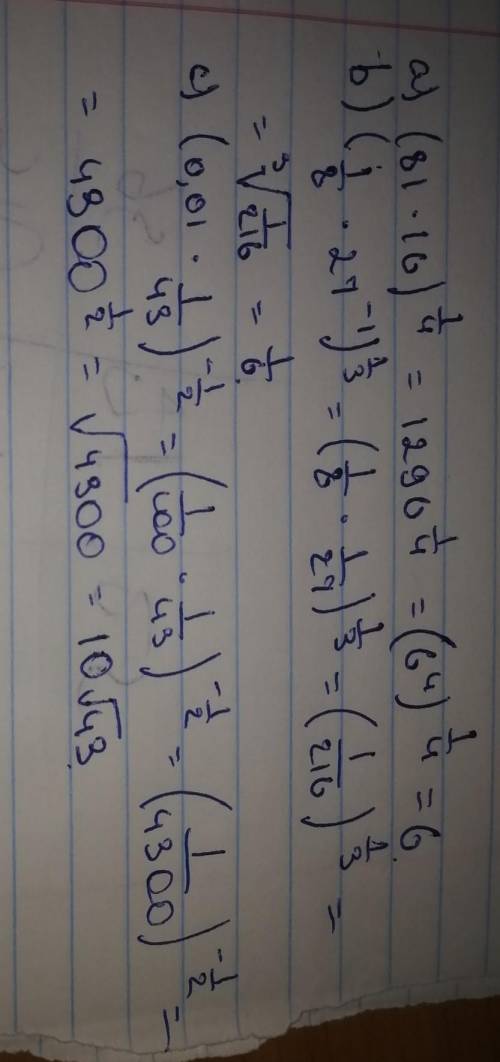 a) (81 · 16)^(1/4) = 1296^(1/4) = (6^4)^(1/4) = 6
b) (1/8 · 27^(-1))^(1/3) = (1/8 · 1/27)^(1/3) = (1/216)^(1/3) =
= ∛(1/216) = 1/6
c) (0,01 · 1/43)^(-1/2) = (1/100 · 1/43)^(-1/2) = (1/4300)^(-1/2) =
= 4300^(1/2) = √4300 = 10√43